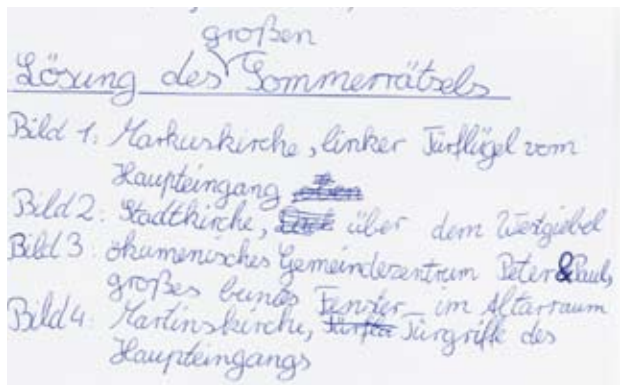 großen
Lösung des Sommerrätsels
Bild 1: Markuskirche, linker Türflügel vom
Haupteingang
Bild 2: Stadtkirche, über dem Westgiebel
Bild 3: ökumenisches Gemeindezentrum Peter & Paul,
großes buntes Fenster im Altarraum
Bild 4: Martinskirche, Türgriff des
Haupteingangs